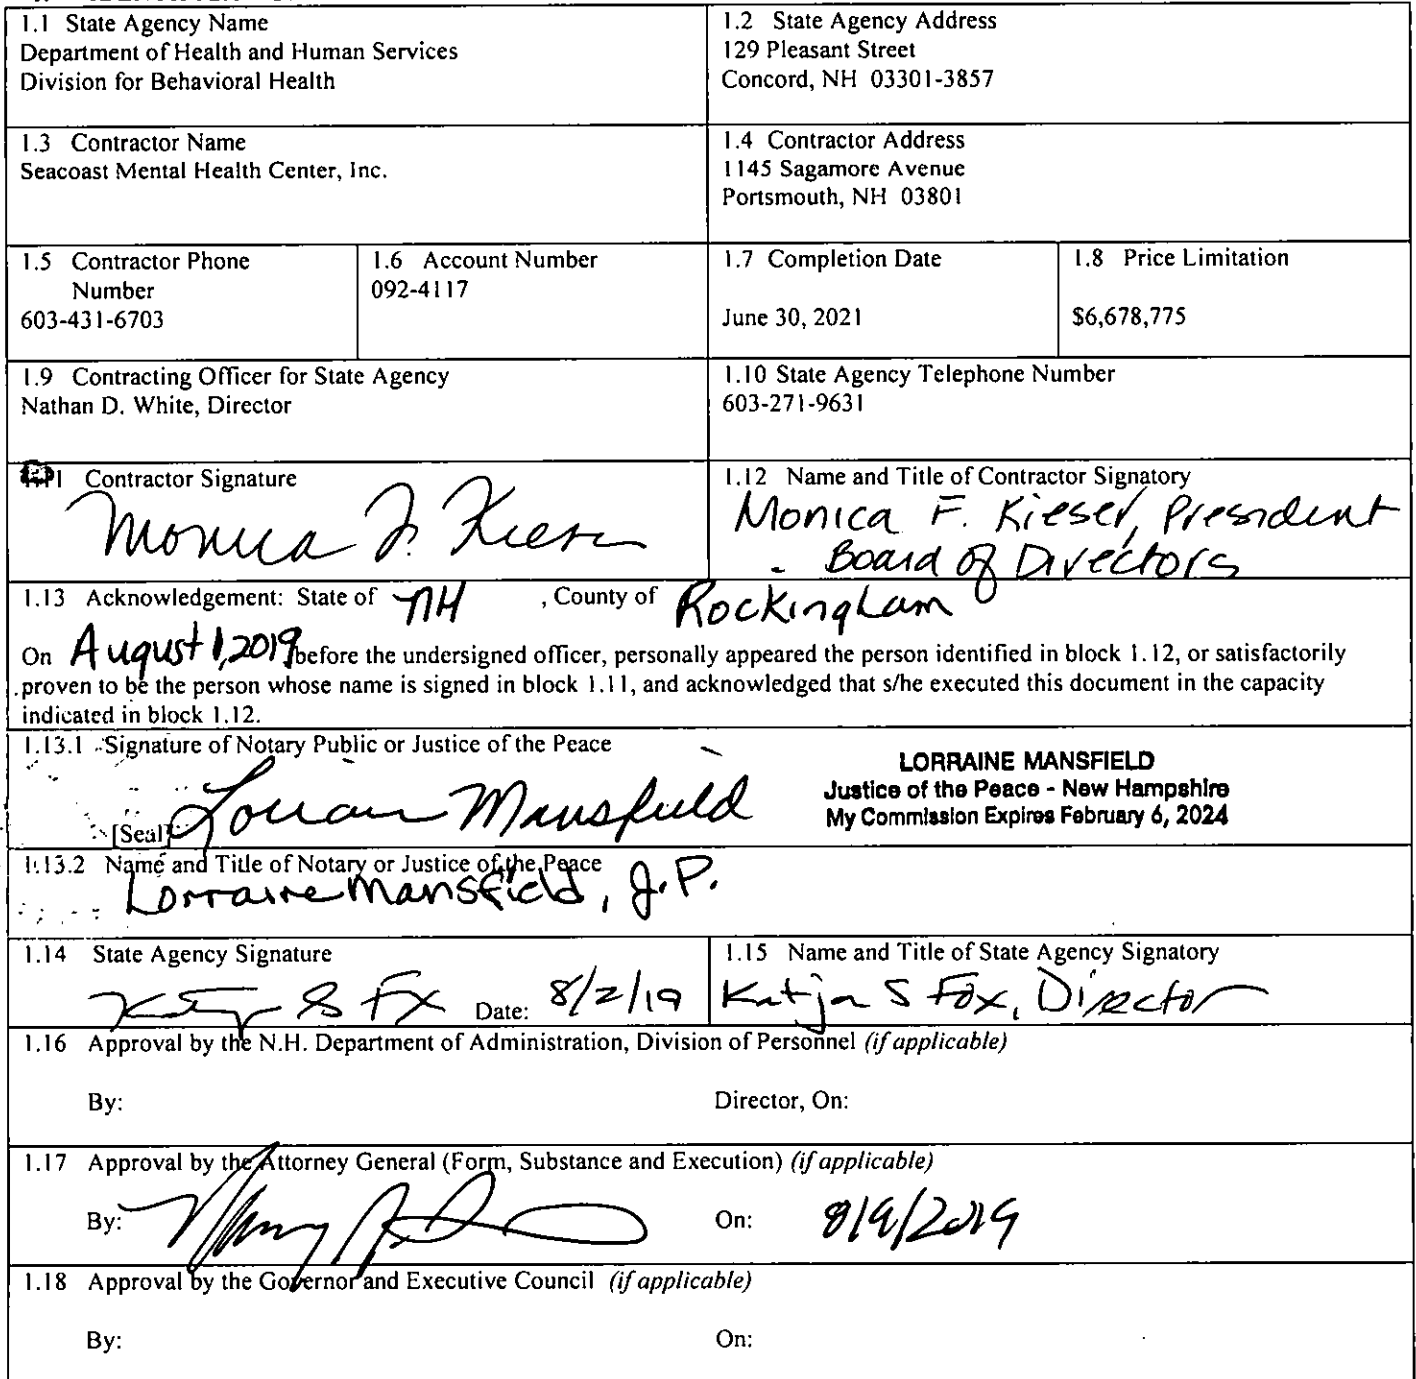 1.1 State Agency Name
Department of Health and Human Services
Division for Behavioral Health
1.2 State Agency Address
129 Pleasant Street
Concord, NH 03301-3857
1.3 Contractor Name
Seacoast Mental Health Center, Inc.
1.4 Contractor Address
1145 Sagamore Avenue
Portsmouth, NH 03801
1.5 Contractor Phone
Number
603-431-6703
1.6 Account Number
092-4117
1.7 Completion Date
June 30, 2021
1.8 Price Limitation
$6,678,775
1.9 Contracting Officer for State Agency
Nathan D. White, Director
1.10 State Agency Telephone Number
603-271-9631
Contractor Signature
Monica F. Kieser
1.12 Name and Title of Contractor Signatory
Monica F. Kieser, President
- Board of Directors
1.13 Acknowledgement: State of NH , County of Rockingham
On August 1, 2019 before the undersigned officer, personally appeared the person identified in block 1.12, or satisfactorily
proven to be the person whose name is signed in block 1.11, and acknowledged that s/he executed this document in the capacity
indicated in block 1.12.
1.13.1 Signature of Notary Public or Justice of the Peace
LORRAINE MANSFIELD
Justice of the Peace - New Hampshire
My Commission Expires February 6, 2024
[Seal] Lorraine Mansfield
1.13.2 Name and Title of Notary or Justice of the Peace
Lorraine Mansfield, J.P.
1.14 State Agency Signature
Date: 8/2/19
1.15 Name and Title of State Agency Signatory
Katja S Fox, Director
1.16 Approval by the N.H. Department of Administration, Division of Personnel (if applicable)
By: Director, On:
1.17 Approval by the Attorney General (Form, Substance and Execution) (if applicable)
By: On: 8/9/2019
1.18 Approval by the Governor and Executive Council (if applicable)
By: On: